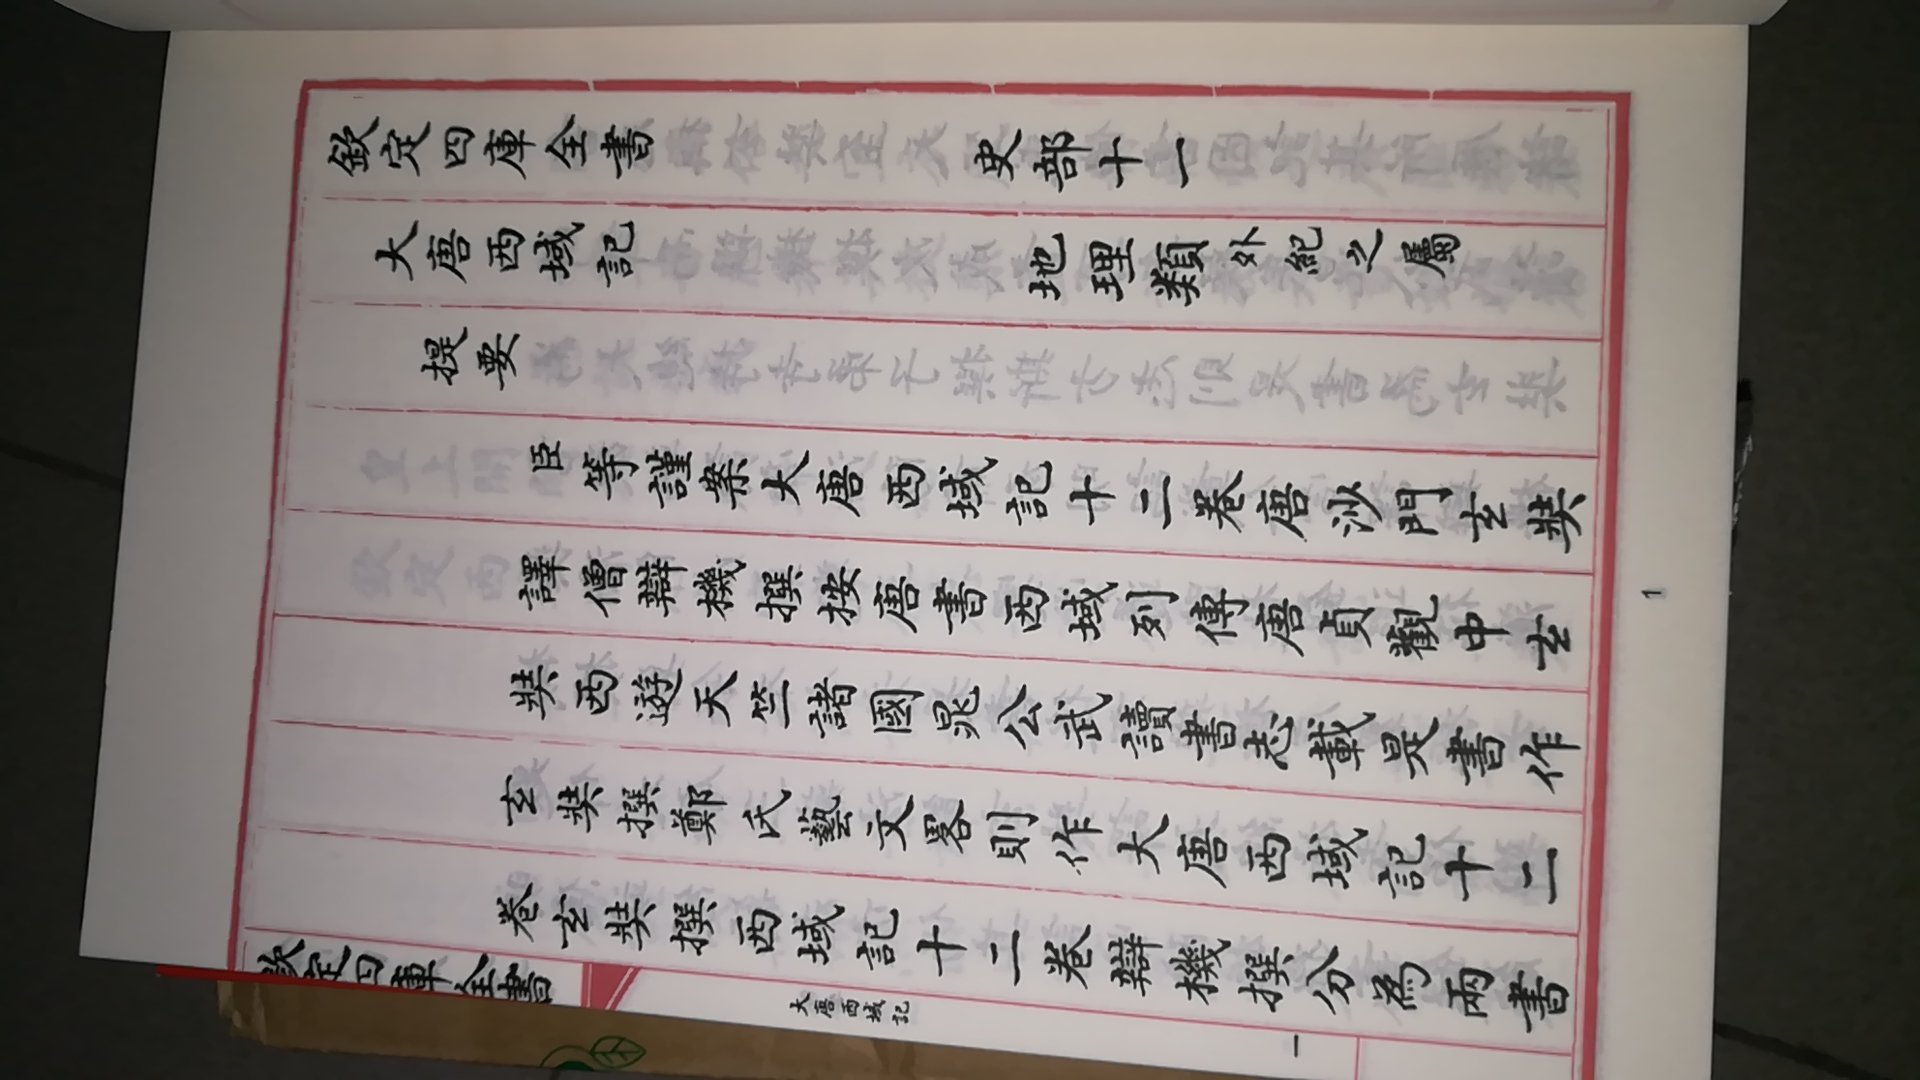 欽定四庫全書 史部十一
大唐西域記 地理類外紀之屬
提要
臣等謹案大唐西域記十二卷唐沙門玄奘
譯僧辯機撰按唐書西域列傳唐貞觀中玄
奘西遊天竺諸國晁公武讀書志載是書作
玄奘撰鄭氏藝文畧則作大唐西域記十二
卷玄奘撰西域記十二卷辯機撰分為兩書
欽定四庫全書
大唐西域記
一
1